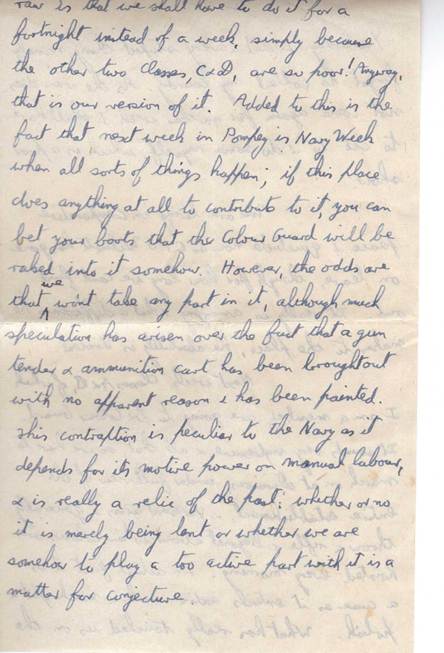 raw is that we shall have to do it for a
fortnight instead of a week, simply because
the other two classes, C&D, are so poor! Anyway,
that is our version of it. Added to this is the
fact that next week in Pompey is Navy Week
when all sorts of things happen; if this place
does anything at all to contribute to it, you can
bet your boots that the Colour Guard will be
raked into it somehow. However, the odds are
that we won't take any part in it, although much
speculation has arisen over the fact that a gun
tender & ammunition cart has been brought out
with no apparent reason & has been painted.
This contraption is peculiar to the Navy as it
depends for its motive power on manual labour,
& is really a relic of the past: whether or no
it is merely being lent or whether we are
somehow to play a too active part with it is a
matter for conjecture